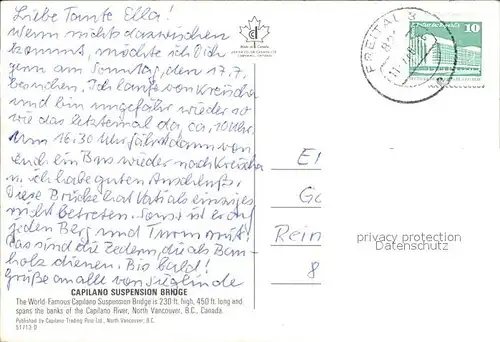 Liebe Tante Ella!
Wenn nichts dazwischen
kommt, möchte ich Dich
gern am Sonntag, den 17.7.
besuchen. Ich laufe von Kreischa
und bin ungefähr wieder so
wie das letztemal da, ca. 10 Uhr.
Um 16.30 Uhr fährt dann von
euch ein Bus wieder nach Kreischa
u. ich habe guten Anschluß.
Diese Brücke hat Vati als einziges
nicht betreten. Sonst ist er auf
jeden Berg und Turm mit!
Das sind die Zedern, die als Bau-
holz dienen. Bis bald!
Grüße an alle von Sieglinde
CAPILANO SUSPENSION BRIDGE
The World Famous Capilano Suspension Bridge is 230 ft. high, 450 ft. long and
spans the banks of the Capilano River, North Vancouver, B.C., Canada.
Published by Capilano Trading Post Ltd., North Vancouver, B.C.
51713-D
FREITAL 3
10
Rein
8
privacy protection
Datenschutz